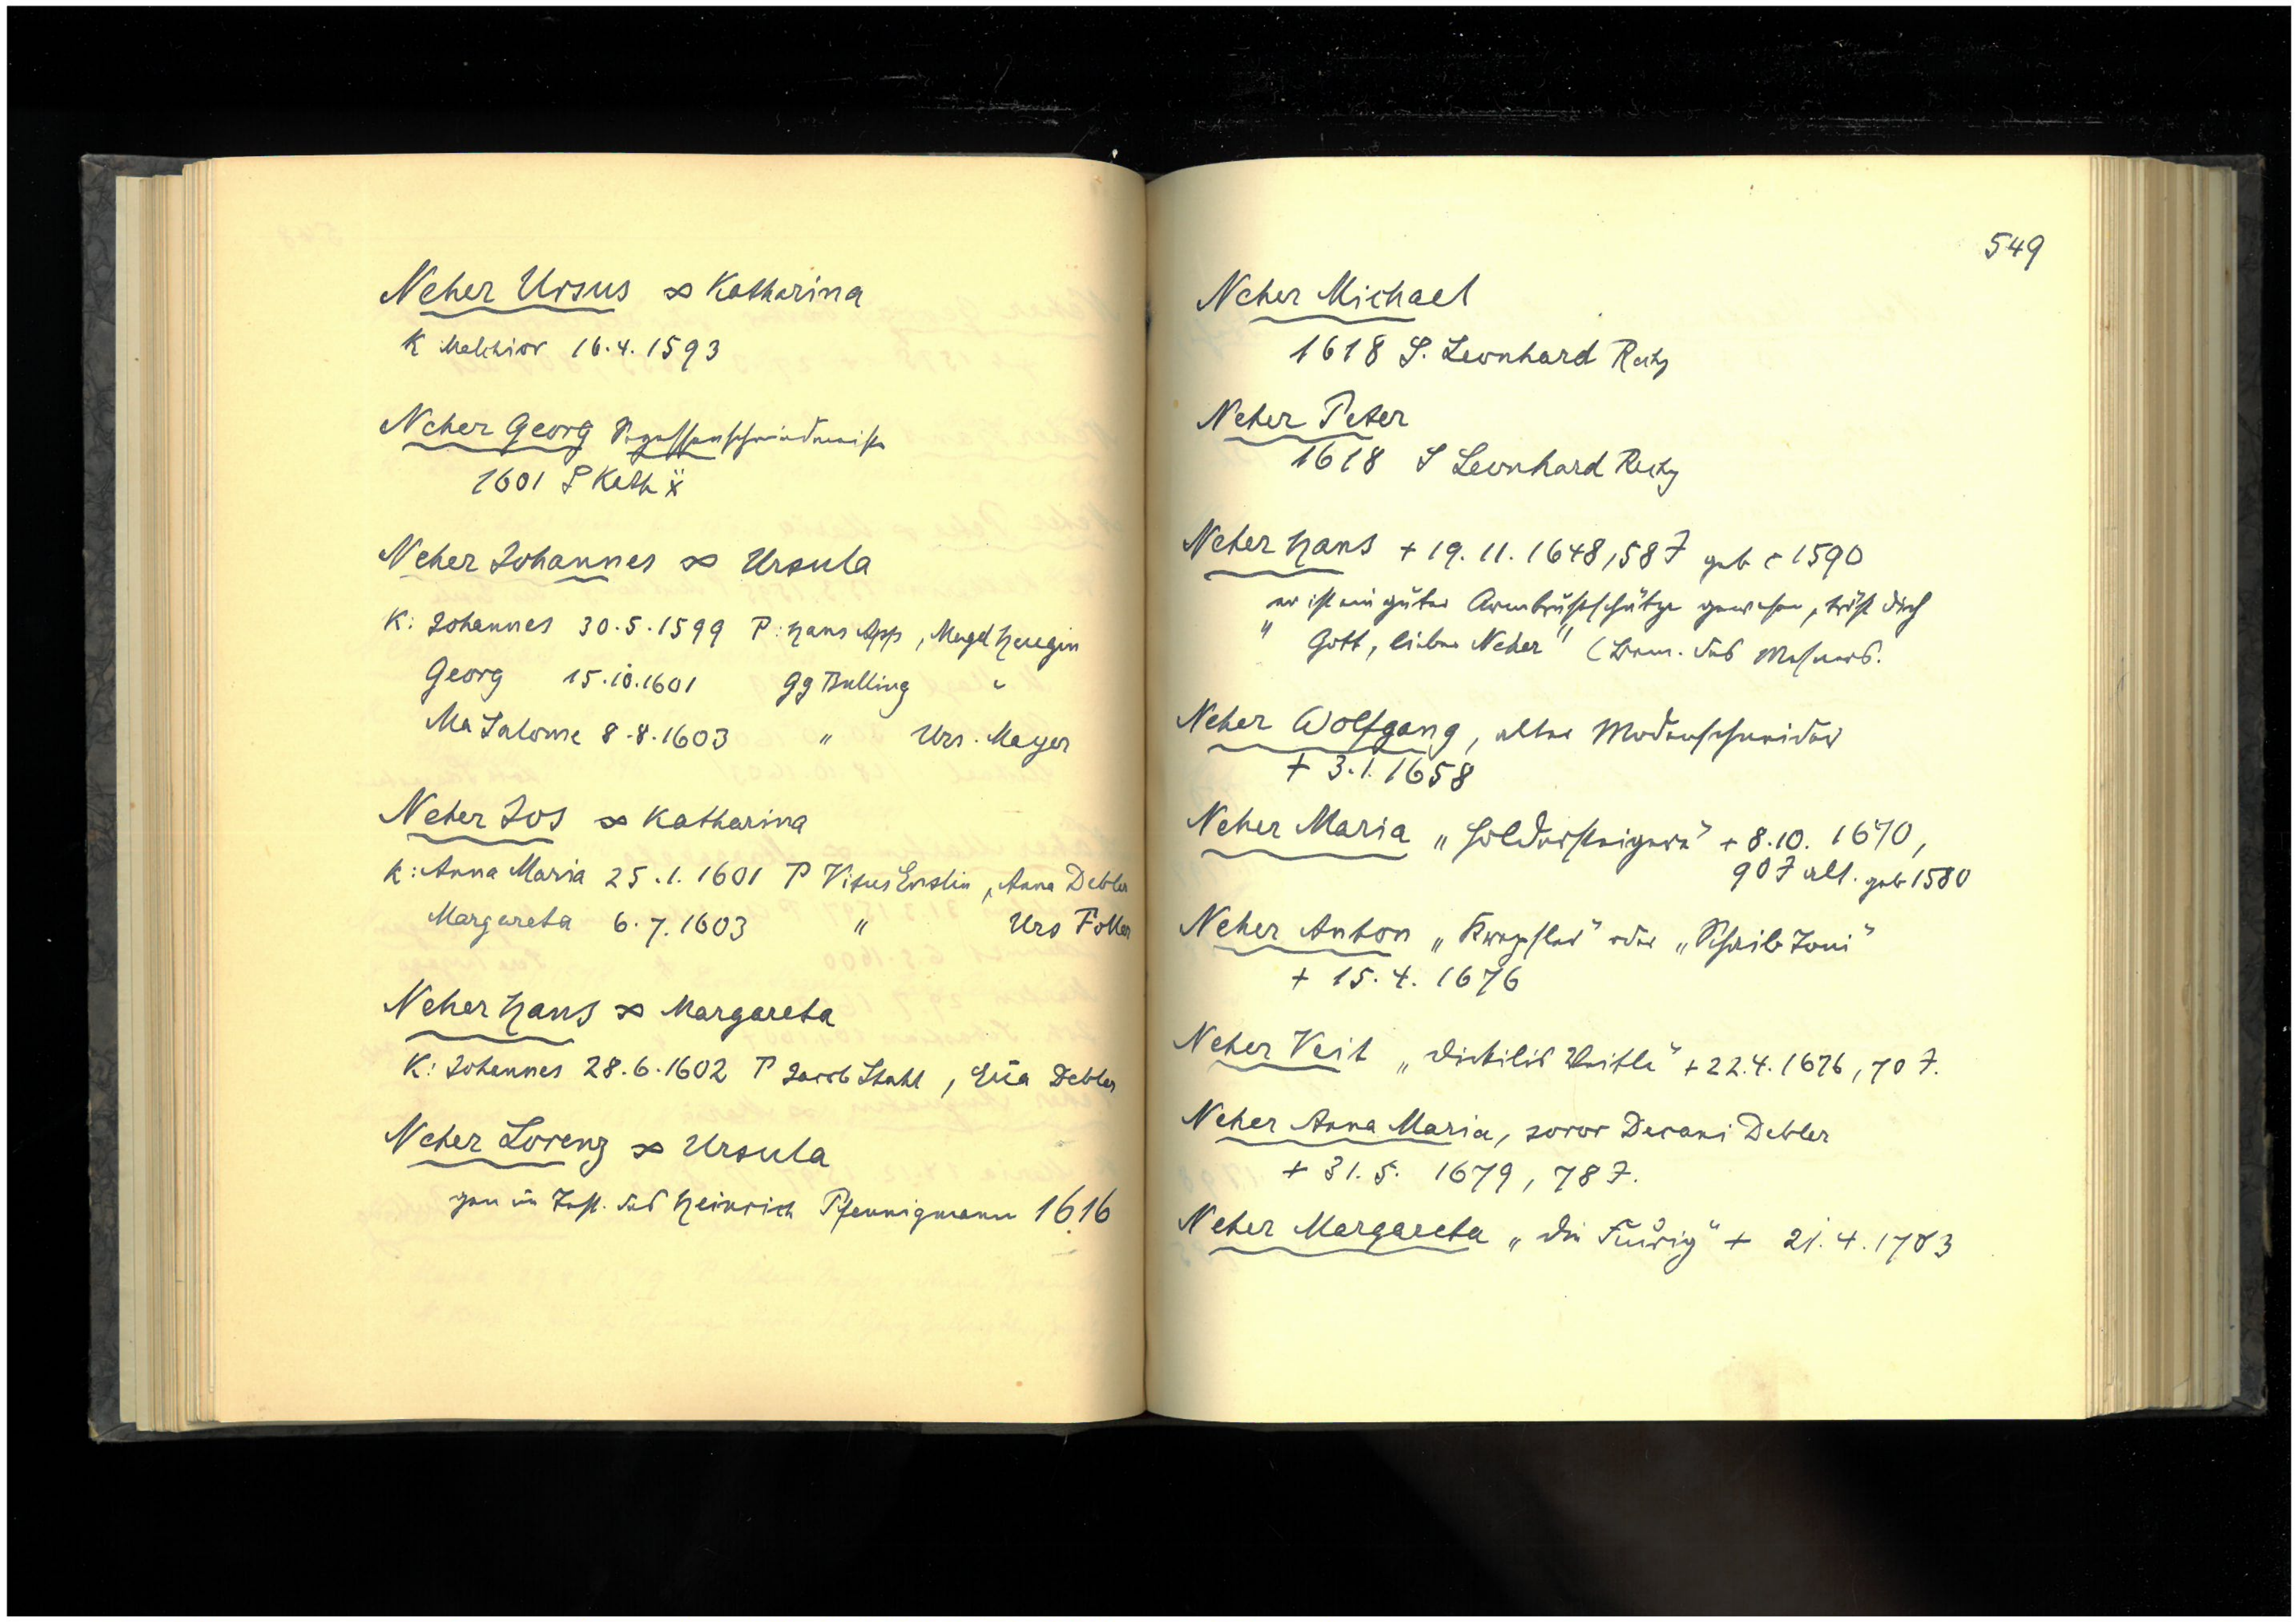 Neher Ursus ∞ Katharina
K Melchior 16.4.1593
Neher Georg
1601 S Kath
Neher Johannes ∞ Ursula
K: Johannes 30.5.1599 P: Hans App, Magd
Georg 15.10.1601 Gg Bulling "
Ma Salome 8.8.1603 " Urs. Mayer
Neher Jos ∞ Katharina
K: Anna Maria 25.1.1601 P Vitus Enslin, Anna Debler
Margareta 6.7.1603 " Urs
Neher Hans ∞ Margareta
K: Johannes 28.6.1602 P Jacob Stahl, Eva Debler
Neher Lorenz ∞ Ursula
gen im Test. des Heinrich Pfennigmann 1616
549
Neher Michael
1618 S. Leonhard
Neher Peter
1618 S Leonhard
Neher Hans + 19.11.1648, 58 J geb c 1590
"er ist ein guter Armbrustschütze gewesen, tröst dich
Gott, lieber Neher" (Bem. des Mesners.
Neher Wolfgang, alter
+ 3.1.1658
Neher Maria + 8.10.1670,
90 J alt. geb 1580
Neher Anton oder
+ 15.4.1676
Neher Veit + 22.4.1676, 70 J.
Neher Anna Maria, soror Decani Debler
+ 31.5.1679, 78 J.
Neher Margareta "die + 21.4.1703